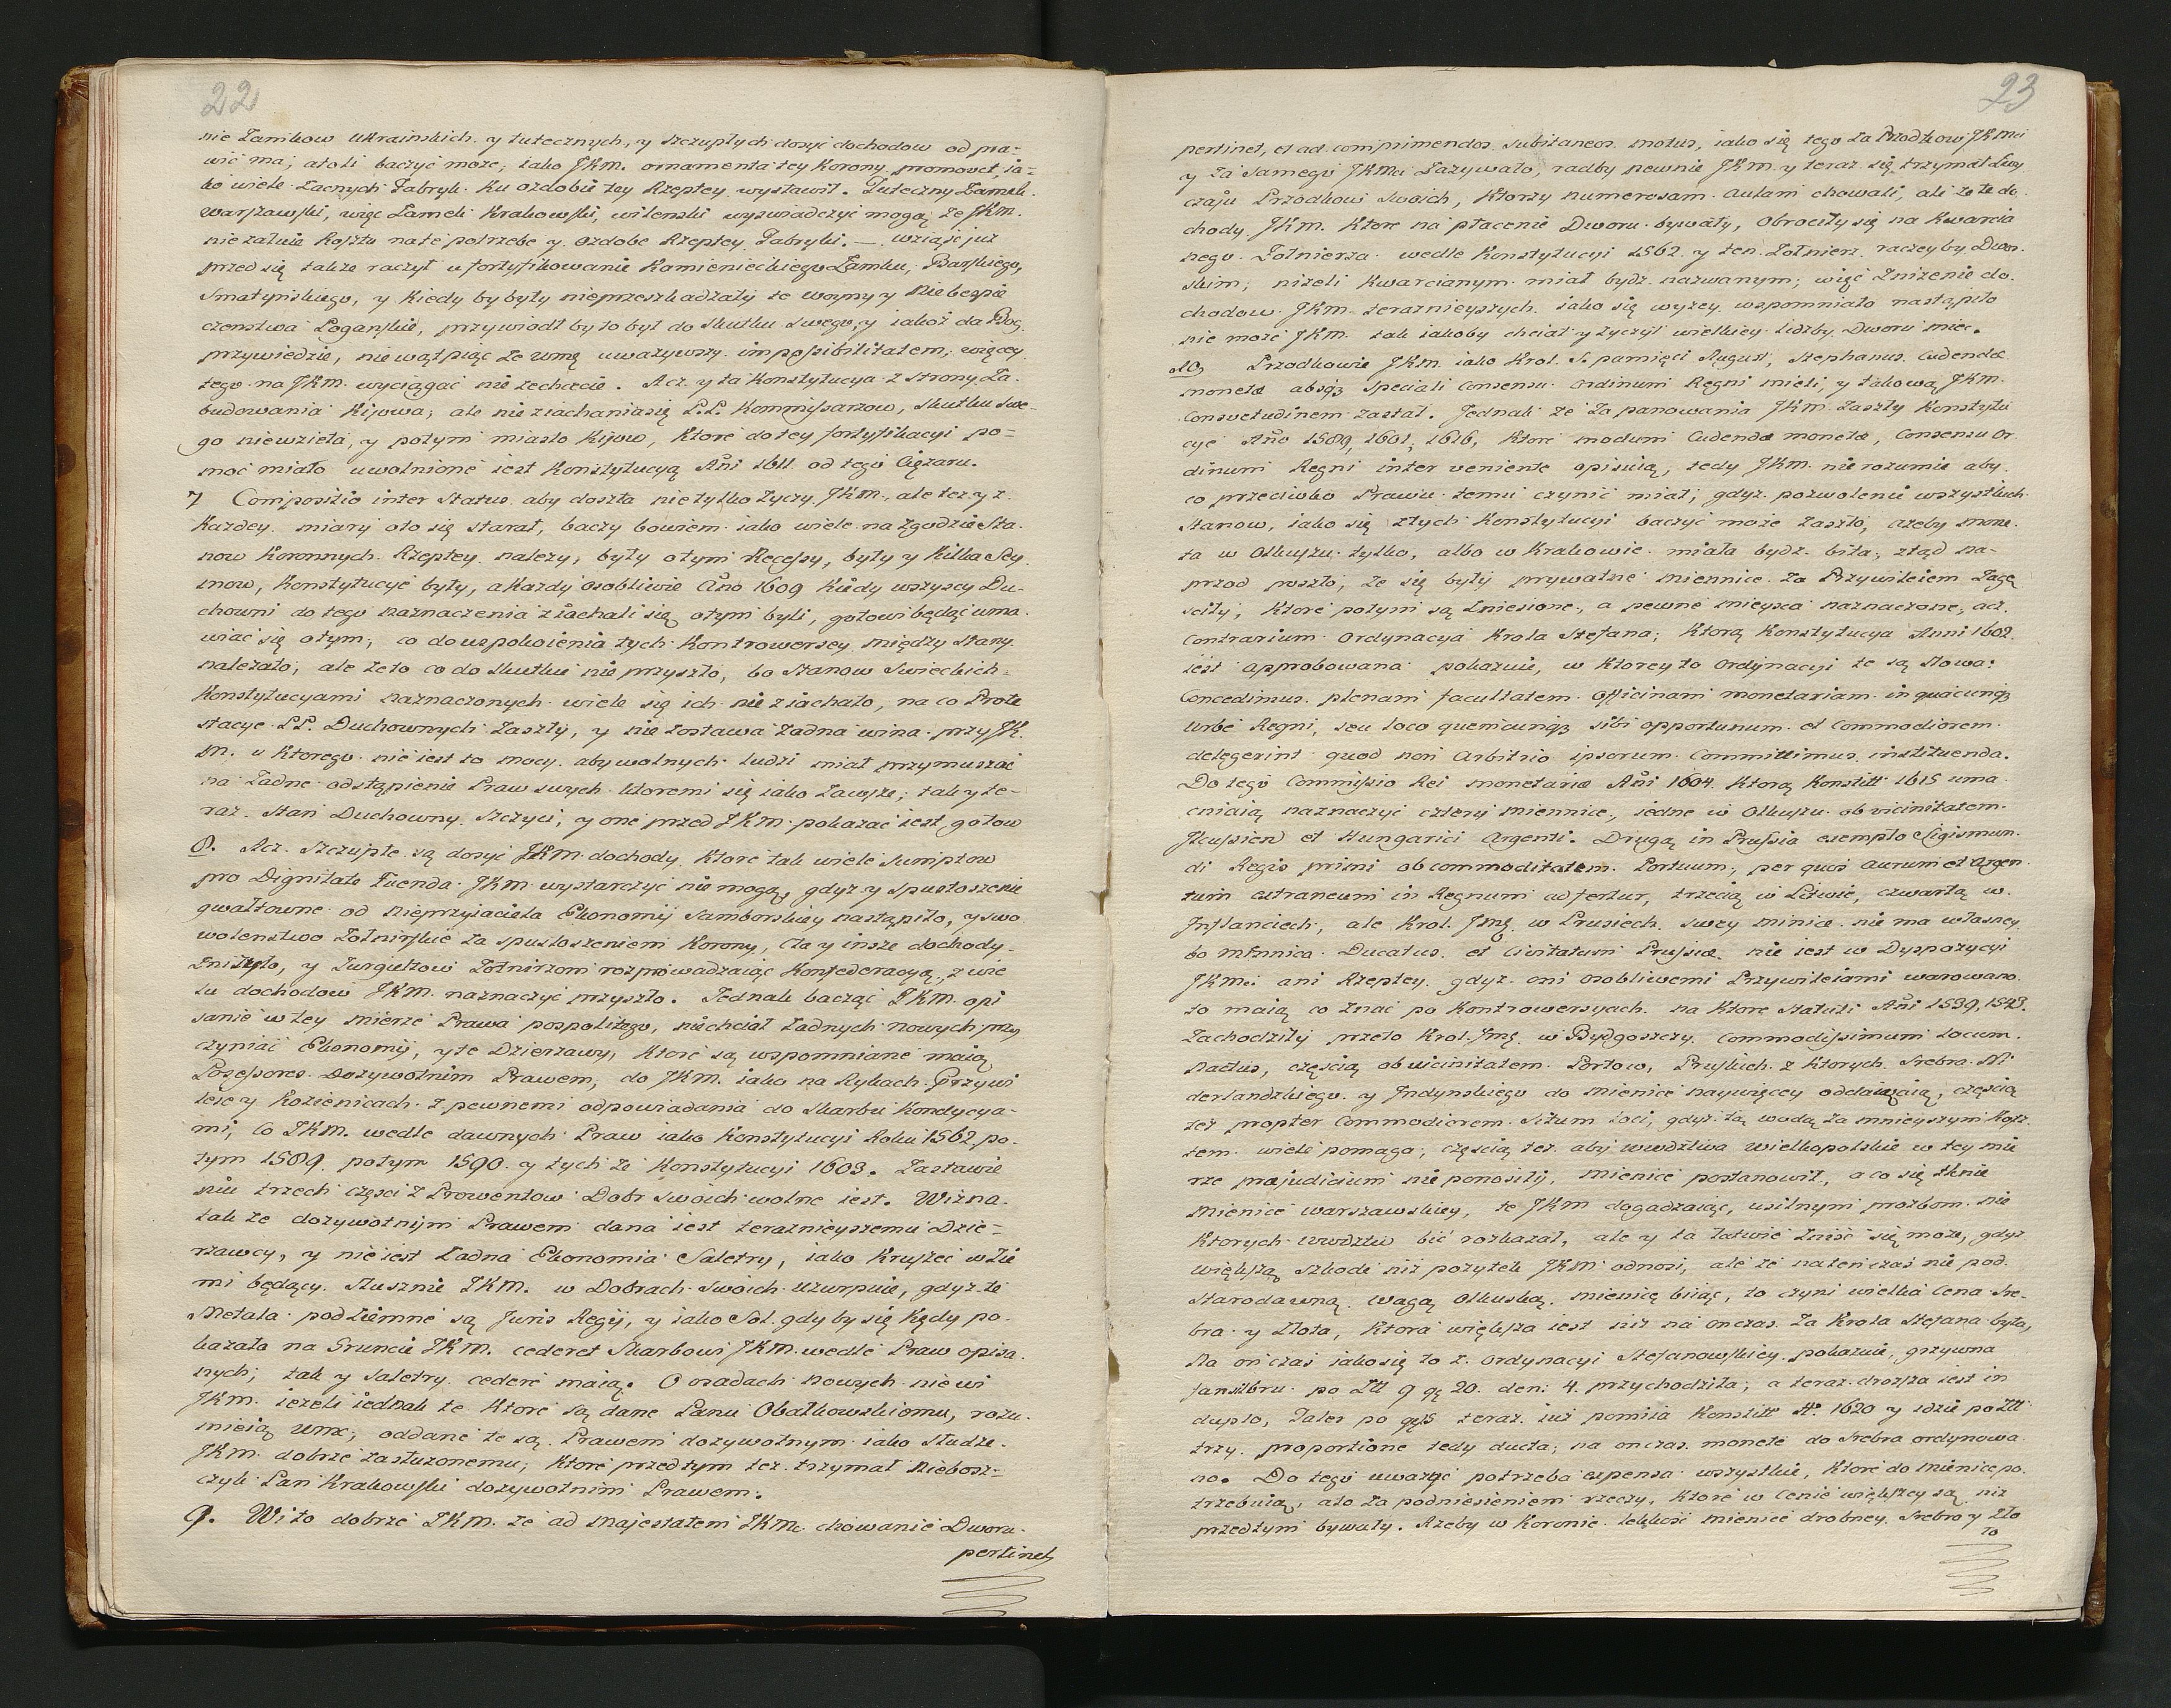 22
nie Zamkow Ukrainskich y tutecznych, y szczupłych dosyć dochodow od pra=
wić ma; atoli baczyć może, iako JKm. ornamenta tey Korony promovet, ia=
ko wiele zacnych Fabryk ku ozdobie tey Rzeptey wystawił. Tuteczny Zamek
Warszawski, więc Zamek Krakowski, wilenski wyswiadczyć mogą, że JKm.
nie załuie Kosztu na te potrzebe y ozdobe Rzeptey Fabryki. — wziąść już
przed się także raczył ufortyfikowanie Kamienieckiego Zamku, Barskiego,
Smatynskiego, y kiedy by były nieprzeszkadzały te woyny y Niebespie
czenstwa Pogańskie, przywiodł by to był do skutku swego, y iakoż da Bog
przywiedzie, nie wątpiąc że wmę uważywszy impossibilitatem, więcey
tego na JKm. wyciągać nie zechcecie. Acz y ta Konstytucya z strony Za-
budowania Kijowa, ale nie ziachania się P.P. Kommissarzow, skutku swe-
go niewzieła, y potym miasto Kijow, Ktore do tey fortyfikacyi po=
moc miało uwolnione iest Konstytucyą Ani 1611. od tego Ciężaru.
7 Compositio inter Status aby doszła nie tylko życzy JKm., ale też y z
Kazdey miary oto się starał, baczy bowiem iako wiele na Zgodzie Sta-
now Koronnych Rzeptey należy, były otym Recessy, były y Kilka Sey
mow, Konstytucye były, a Kazdy osobliwie Ano 1609 Kiedy wszyscy Du-
chowni do tego naznaczenia ziachali się otym byli, gotowi będąc uma
wiać się otym, co do uspokoienia tych Kontrowersey między Stany
należało; ale że to co do skutku nie przyszło, bo Stanow Swieckich
Konstytucyami naznaczonych wiele się ich nie ziachało, na co Prote
stacye P.P. Duchownych zaszły, y nie zostawa żadna wina przy JK.
M. u ktorego nie iest to mocy aby wolnych ludzi miał przymuszać
na żadne odstąpienie Praw swych ktoremi się iako zawsze, tak y te-
raz Stan Duchowny szczyci, y one przed JKm. pokazać iest gotow
8. Acz szczupłe są dosyć JKm. dochody, Ktore tak wiele Sumptow
pro Dignitate Tuenda JKm wystarczyć nie mogą, gdyż y spustoszenie
gwałtowne od Nieprzyiaciela Ekonomij Samborskiey nastąpiło, y swo
wolenstwo Zołnirskie za spustoszeniem Korony, Cła y insze dochody
Zniszyło, y Jurgieltow Zołnirzom rozprowadzaiąc Konfederacyą, z wie
lu dochodow JKm. naznaczyć przyszło. Jednak bacząc JKm. opi
sanie w tey mierze Prawa pospolitego, nie chciał żadnych nowych przy
czyniać Ekonomij, y te Dzierżawy, Ktore są wspomniane maią
Possessores Dożywotnim Prawem, do JKm. iako na Rykach Przywi
leie y Kozienicach z pewnemi odpowiadania do Skarbu Kondycya-
mi, Co JKm. wedle dawnych Praw iako Konstytucyi Roku 1562 po-
tym 1589. potym 1590. y tych że Konstytucyi 1603. zastawie
niu trzech części z Prowentow Dobr swoich wolne iest. Wizna
tak że dożywotnim Prawem dana iest teraznieyszemu Dzie=
rżawcy, y nie iest żadna Ekonomia Saletry, iako Kruszec w Zie
mi będący słusznie JKm. w Dobrach swoich uzurpuie, gdyż te
Metala podziemne są Juris Regij, y iako Sol gdy by się Kędy po-
kazała na Gruncie JKm. cederet Skarbowi JKm. wedle Praw opisa
nych; tak y Saletry cedere maią. O osadach nowych nie wi
JKm. ieżeli iednak te Ktore są dane Panu Obałkowskiemu, rozu-
mieią Wmc; oddane te są Prawem dożywotnym iako słudze
JKm. dobrze zasłużonemu; Ktore przed tym też trzymał Niebosz=
czyk Pan Krakowski dożywotnim Prawem.
9. Wi to dobrze JKm. że ad Majestatem JKmc. chowanie Dworu
pertinet
23
pertinet, et ad comprimendos subitaneos motus, iako się tego za Przodkow JKmci
y za samego JKmci zażywało, radby pewnie JKm. y teraz się trzymał Zwy
czaju Przodkow swoich, Ktorzy numerosam Aulam chowali, ale że te do
chody JKm. Ktore na płacenie Dworu bywały, obrociły się na Kwarcia
nego Zołnierza wedle Konstytucyi 1562. y ten Zołnierz raczey by Dwor
skim, niżeli Kwarcianym miał bydz nazwanym; więc Zniżenie do
chodow JKm. teraznieyszych iako się wyżey wspomniało nastąpiło
nie może JKm. tak iakoby chciał y życzył wielkiey liczby Dworu mieć.
10 Przodkowie JKm. iako Krol S. pamięci August, Stephanus Cudendæ
monetæ absqz speciali Consensu ordinum Regni mieli, y takową JKm.
Consvetudinem zastał. Jednak że za panowania JKm. zaszły Konstytu
cye Año 1589, 1601, 1616, Ktore modum Cudendæ monetæ, Consensu Or
dinum Regni inter veniente opisuią, tedy JKm. nie rozumie aby
co przeciwko Prawu temu czynić miał; gdyż pozwolenie wszystkich
Stanow, iako się z tych Konstytucyi baczyć może zaszło, ażeby mone
ta w Olkuszu tylko, albo w Krakowie miała bydz bita, ztąd na-
przod poszło, że się były prywatne miennice za Przywileiem Zagę
sciły, Ktore potym są zniesione, a pewne mieysca naznaczone, acz
Contrarium Ordynacya Krola Stefana, Ktorą Konstytucya Anni 1602
iest Approbowana pokazuie, w Ktorey to Ordynacyi te są słowa:
Concedimus plenam facultatem Officinam monetariam in quacunqz
Urbe Regni, seu loco quemcunqz sibi opportunum et Commodiorem
delegerint quod non Arbitrio ipsorum Committimus instituenda.
Do tego Commissio Rei monetariæ Ani 1604. Ktorą Konstitt 1615 uma
cniaią naznaczyć cztery miennice, iedne w Olkuszu ob vicinitatem
Ilcussien et Hungarici Argenti. Drugą in Prussia exemplo Sigismun
di Regis primi ob commoditatem Portuum, per quos aurum et Argen
tum extraneum in Regnum adfertur, trzecią w Litwie, czwartą w
Inflanciech, ale Krol Jmę w Prusiech swey minice nie ma własney
bo mennica Ducatus et Civitatum Prussiæ nie iest w Dyspozycyi
JKmci ani Rzeptey gdyż oni osobliwemi Przywileiami warowano
to maią co znać po Kontrowersyach na Ktore Statuti Ani 1539, 1543.
Zachodziły przeto Krol Jmę w Bydgoszczy Commodissimum locum
Nactus, częscią ob vicinitatem Portow, Pruskich z Ktorych Srebra Ni
derlandzkiego y Indynskiego do mienice naywięcey oddawaią, częscią
też propter Commodiorem Situm loci, gdyż tą wodą za mnieyszym Kosz
tem wiele pomaga, częscią też aby wwdztwa wielkopolskie w tey mie
rze præjudicium nie ponosiły, mienice postanowił, a co się tknie
mienice warszawskiey, te JKm dogadzaiąc, usilnym prozbom nie
Ktorych wwdztw bić rozkazał, ale y ta łatwie znisc się może, gdyż
większą szkode niż pożytek JKm odnosi, ale że na ten czas nie pod
Starodawną wagą Olkuską mienicę biiąc, to czyni wielka Cena Sre-
bra y Złota, Ktora większa iest niż na onczas za Krola Stefana była,
Na on czas iako się to z Ordynacyi Stefanowskiey pokazuie, grzywna
fansilbru po Ztt 9 gę 20. den: 4. przychodziła; a teraz drozsza iest in
duplo, Taler po teraz iuż pomiia Konstitt A° 1620 y idzie po Ztt
trzy proportione tedy ducta, na onczas monete do Srebra ordynowa
no. Do tego uważyć potrzeba expensa wszystkie, Ktore do mienice po
trzebuią, ato za podniesieniem rzeczy, Ktore w Cenie większey są niż
przedtym bywały. Ażeby w Koronie lekkość mienice drobney Srebro y Zło
to